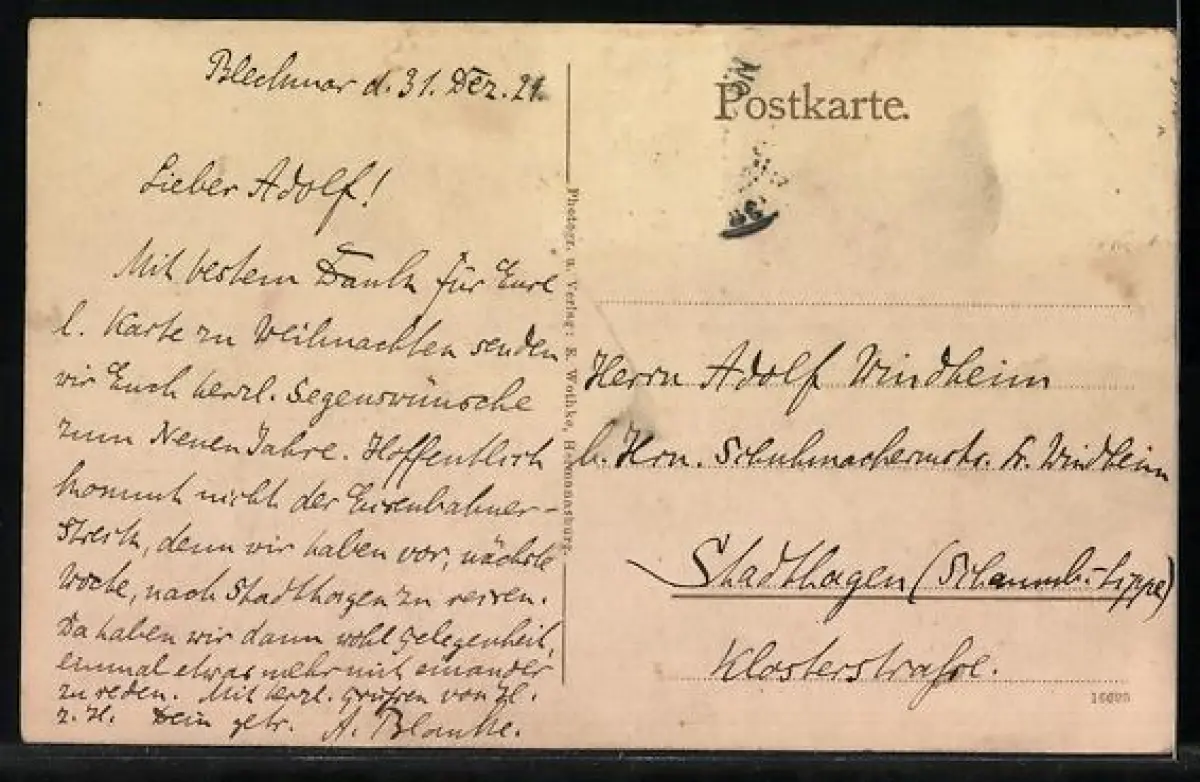 Blechmar d. 31. Dez. 21.
Lieber Adolf!
Mit bestem Dank für Eure
l. Karte zu Weihnachten senden
wir Euch herzl. Segenswünsche
zum Neuen Jahre. Hoffentlich
kommt nicht der Eisenbahner-
Streik, denn wir haben vor, nächste
Woche, nach Stadthagen zu reisen.
Da haben wir dann wohl Gelegenheit,
einmal etwas mehr mit einander
zu reden. Mit herzl. Grüßen von H.
z. H. Dein getr. A. Blanke.
Photogr. u. Verlag: E. Wothke, Hermannsburg.
Postkarte.
Herrn Adolf Windheim
b. Hrn. Schuhmachermstr. Fr. Windheim
Stadthagen (Schaumb.-Lippe)
Klosterstraße.